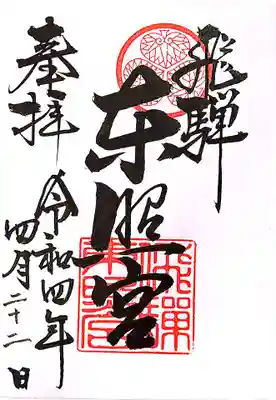 飛騨
東照宮
奉拝
令和四年
四月二十二日
飛騨東照宮